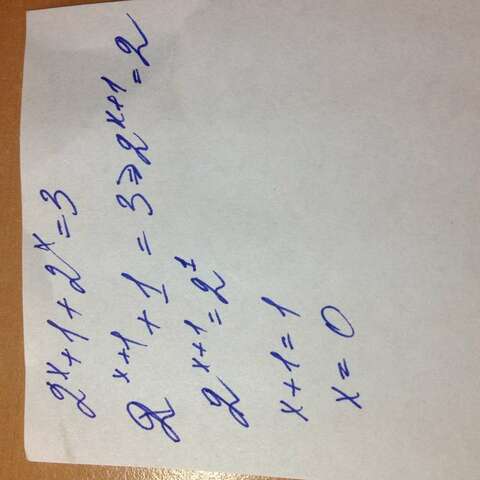 2^x+1+2^x=3
2^{x+1}+1=3⇒2^{x+1}=2
2^{x+1}=2^1
x+1=1
x=0